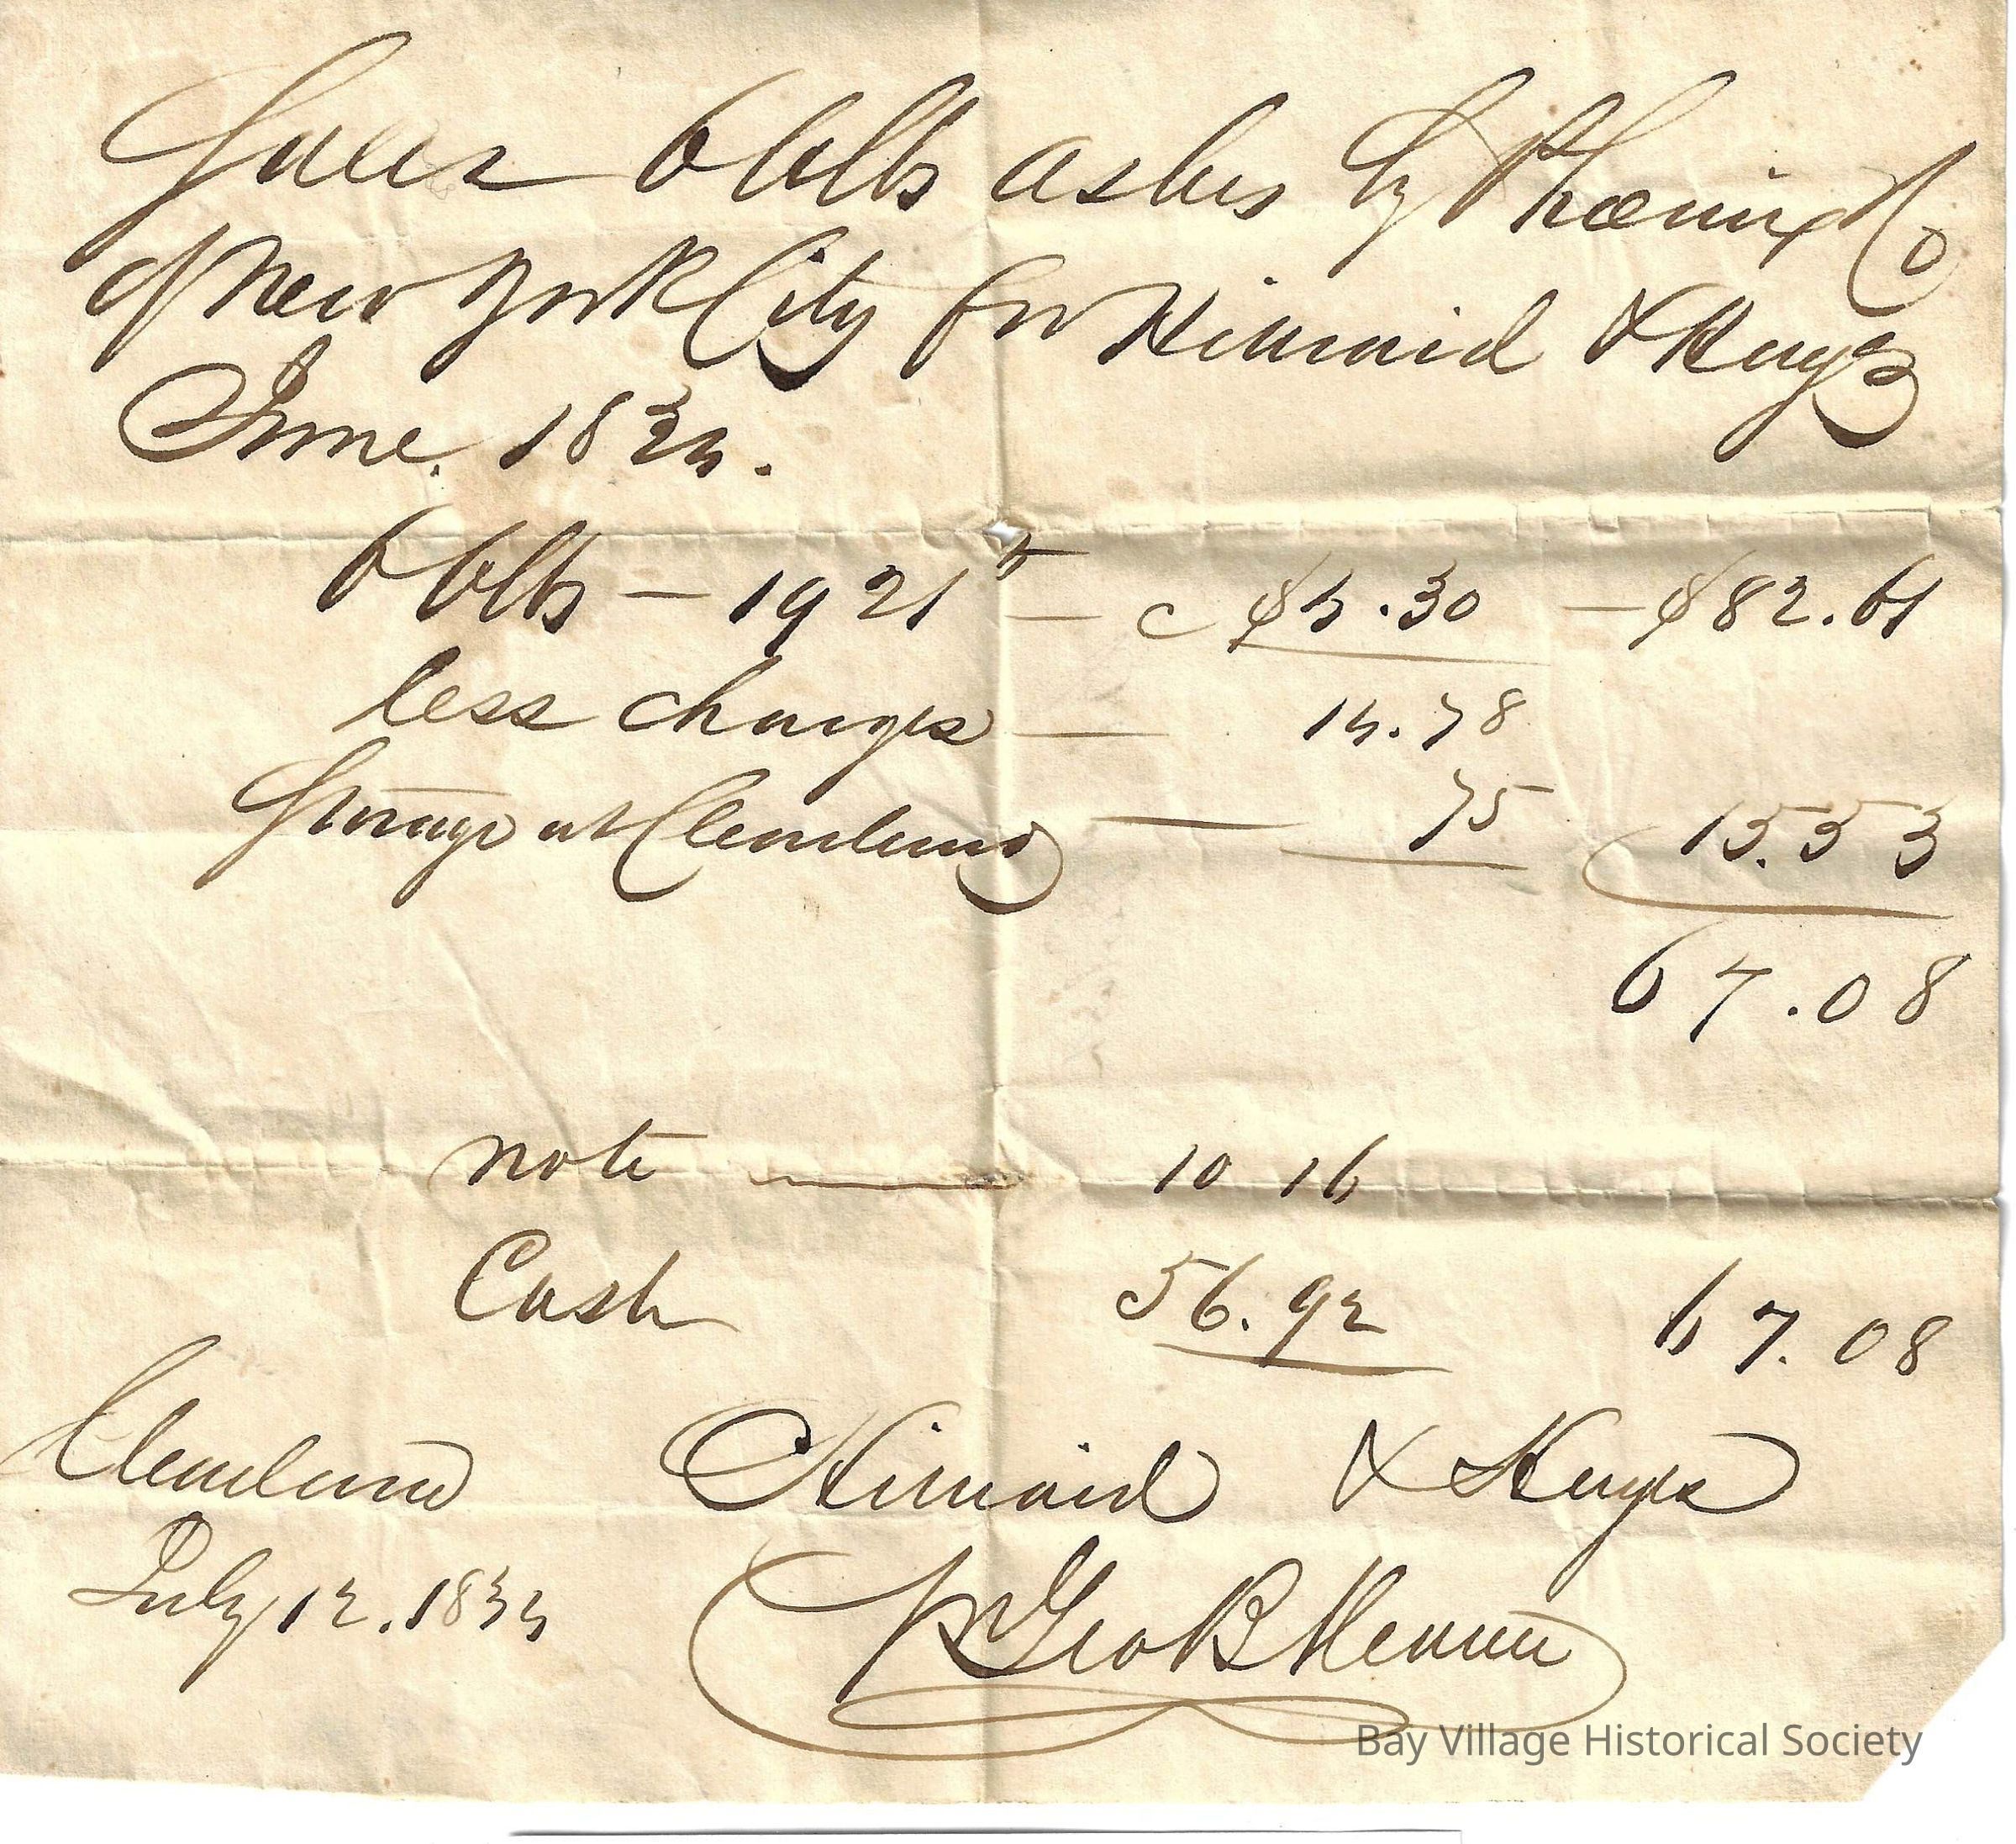 Sales 6 bbls ashes by Phœnix & Co
of New York City for Hilliard & Hays
June. 1834.
6 bbls — 1921 — $4.30 — $82.61
less charges — 14.78
Storage at Cleveland — 75 15.53
67.08
note — 10 16
Cash 56.92 67.08
Cleveland Hilliard & Hays
July 12. 1834 pr Geo B Merwin
Bay Village Historical Society